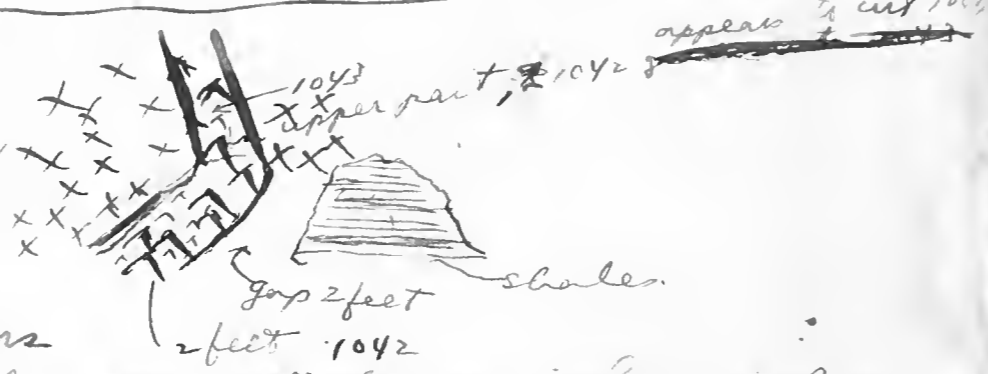 appears to cut
1043
upper part, 1042
shales.
gap 2 feet
2 feet 1042